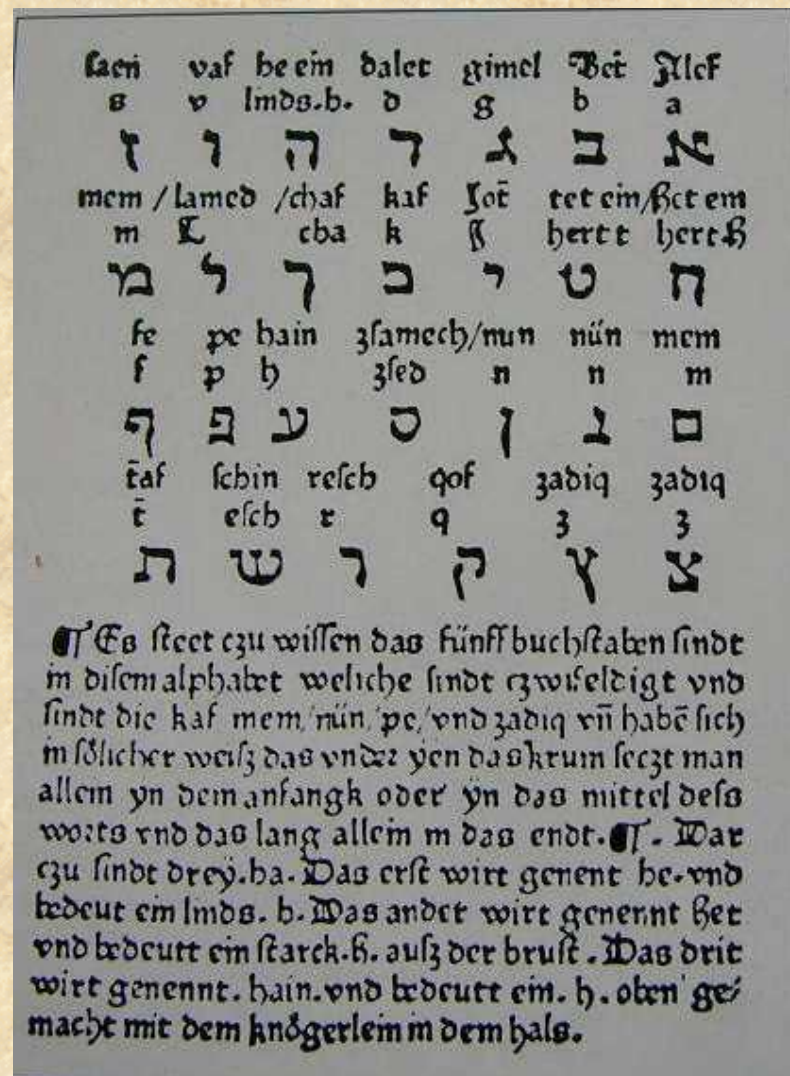 ſaen vaf he ein dalet gimel Bet Alef
s v lmds.h. d g b a
א ב ג ד ה ו ז
mem / lamed /chaf kaf Jot tet ein/Het em
m L cha k J hert t hert H
ח ט י כ ך ל מ
fe pe hain zſamech/nun nün mem
f p h zſed n n m
ם נ ן ס ע פ ף
t̄af ſchin reſch qof zadiq zadiq
t̄ eſch r q z z
צ ץ ק ר ש ת
¶ Es ſteet czu wiſſen das fünff buchſtaben ſindt
in diſem alphabet weliche ſindt czwifeldigt vnd
ſindt die kaf mem/nün/pe/vnd zadiq vn̄ habē ſich
in ſölicher weiſz das vnder yen das krum ſeczt man
allein yn dem anfangk oder yn das mittel deſs
worts vnd das lang allein in das endt. ¶. Dar
czu ſindt drey.ha. Das erſt wirt genent he.vnd
bedeut ein lmds. h. Das ander wirt genennt Het
vnd bedeutt ein ſtarck.H. auſz der bruſt. Das drit
wirt genennt. hain.vnd bedeutt ein. h. oben ge/
macht mit dem knögerlein in dem hals.